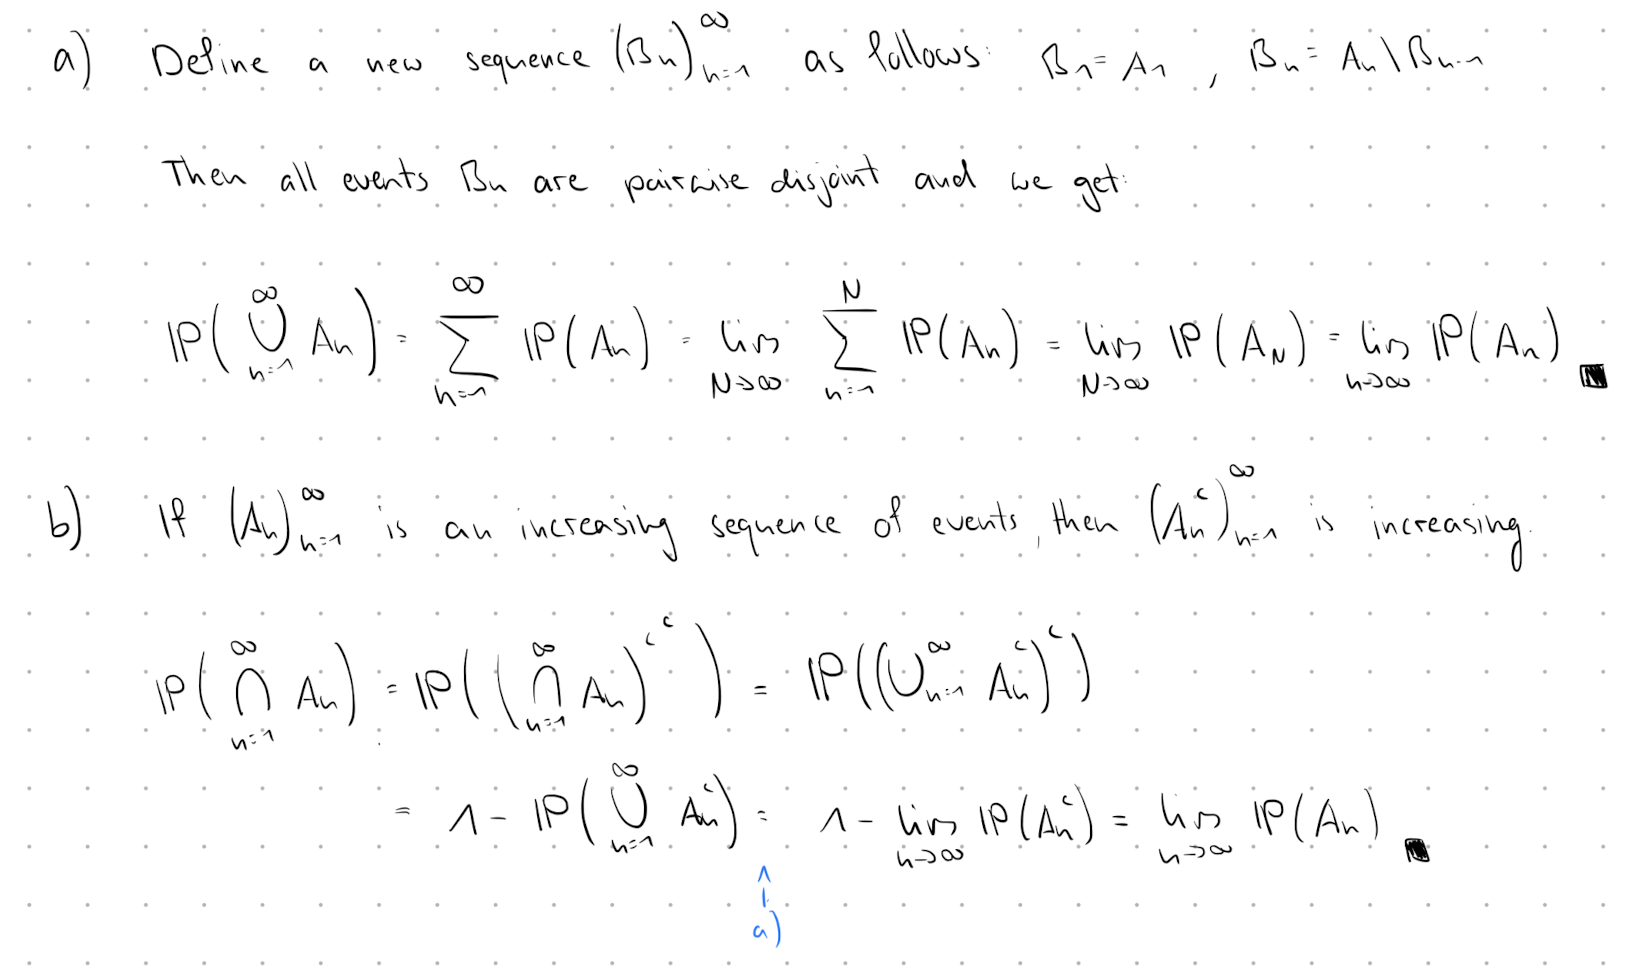 a) Define a new sequence (Bₙ)ₙ₌₁^∞ as follows: B₁ = A₁ , Bₙ = Aₙ \ Bₙ₋₁
Then all events Bₙ are pairwise disjoint and we get:
ℙ(⋃ₙ₌₁^∞ Aₙ) = ∑ₙ₌₁^∞ ℙ(Aₙ) = lim_{N→∞} ∑ₙ₌₁^N ℙ(Aₙ) = lim_{N→∞} ℙ(A_N) = lim_{n→∞} ℙ(Aₙ) ∎
b) If (Aₙ)ₙ₌₁^∞ is an increasing sequence of events, then (Aₙᶜ)ₙ₌₁^∞ is increasing.
ℙ(⋂ₙ₌₁^∞ Aₙ) = ℙ((⋂ₙ₌₁^∞ Aₙ)ᶜᶜ) = ℙ((⋃ₙ₌₁^∞ Aₙᶜ)ᶜ)
= 1 - ℙ(⋃ₙ₌₁^∞ Aₙᶜ) = 1 - lim_{n→∞} ℙ(Aₙᶜ) = lim_{n→∞} ℙ(Aₙ) ∎
a)